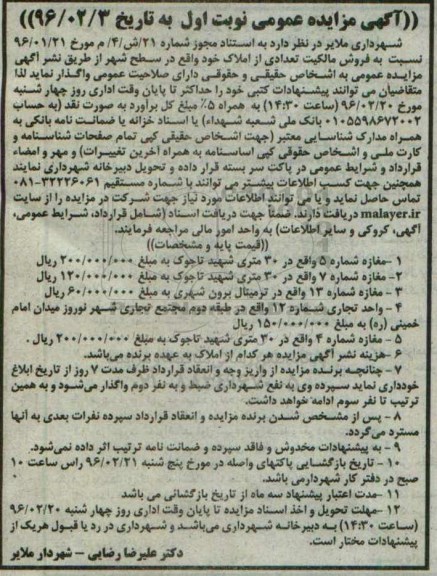 ((آگهی مزایده عمومی نوبت اول به تاریخ ۹۶/۰۲/۳))
شهرداری ملایر در نظر دارد به استناد مجوز شماره ۲۱/ش/۴/ م مورخ ۹۶/۰۱/۲۱
نسبت به فروش مالکیت تعدادی از املاک خود واقع در سطح شهر از طریق نشر آگهی
مزایده عمومی به اشخاص حقیقی و حقوقی دارای صلاحیت عمومی واگذار نماید لذا
متقاضیان می توانند پیشنهادات کتبی خود را حداکثر تا پایان وقت اداری روز چهار شنبه
مورخ ۹۶/۰۲/۲۰ (ساعت ۱۴:۳۰) به همراه ۵٪ مبلغ کل برآورد به صورت نقد (به حساب
۰۱۰۵۵۹۸۶۷۲۰۰۲ بانک ملی شعبه شهداء) یا اسناد خزانه یا ضمانت نامه بانکی به
همراه مدارک شناسایی معتبر (جهت اشخاص حقیقی کپی تمام صفحات شناسنامه و
کارت ملی و اشخاص حقوقی کپی اساسنامه به همراه آخرین تغییرات) و مهر و امضاء
قرارداد و شرایط عمومی در پاکت سر بسته قرار داده و تحویل دبیرخانه شهرداری نمایند
همچنین جهت کسب اطلاعات بیشتر می توانند با شماره مستقیم ۳۲۲۲۶۰۶۱-۰۸۱
تماس حاصل نماید و یا می توانند اطلاعات مورد نیاز جهت شرکت در مزایده را از سایت
malayer.ir دریافت دارند. ضمناً جهت دریافت اسناد (شامل قرارداد، شرایط عمومی،
آگهی، کروکی و سایر اطلاعات) به واحد امور مالی مراجعه فرمایند.
((قیمت پایه و مشخصات))
۱ -مغازه شماره ۵ واقع در ۳۰ متری شهید تاجوک به مبلغ ۲۰۰/۰۰۰/۰۰۰ ریال
۲- مغازه شماره ۷ واقع در ۳۰ متری شهید تاجوک به مبلغ ۱۲۰/۰۰۰/۰۰۰ ریال
۳ - مغازه شماره ۱۳ واقع در ترمینال برون شهری به مبلغ ۶۰/۰۰۰/۰۰۰ ریال
۴ - واحد تجاری شماره ۱۲ واقع در طبقه دوم مجتمع تجاری شهر نوروز میدان امام
خمینی (ره) به مبلغ ۱۵۰/۰۰۰/۰۰۰ ریال
۵ - مغازه شماره ۴ واقع در ۳۰ متری شهید تاجوک به مبلغ ۲۰۰/۰۰۰/۰۰۰ ریال .
۶ -هزینه نشر آگهی مزایده هر کدام از املاک به عهده برنده می‌باشد.
۷ - چنانچه برنده مزایده از واریز وجه و انعقاد قرارداد ظرف مدت ۷ روز از تاریخ ابلاغ
خودداری نماید سپرده وی به نفع شهرداری ضبط و به نفر دوم واگذار می‌شود و به همین
ترتیب تا نفر سوم ادامه خواهد داشت.
۸ - پس از مشخص شدن برنده مزایده و انعقاد قرارداد سپرده نفرات بعدی به آنها
مسترد می‌گردد.
۹ - به پیشنهادات مخدوش و فاقد سپرده و ضمانت نامه ترتیب اثر داده نمی‌شود.
۱۰ - تاریخ بازگشایی پاکتهای واصله در مورخ پنج شنبه ۹۶/۰۲/۲۱ راس ساعت ۱۰
صبح در دفتر کار شهردارمی باشد.
۱۱ -مدت اعتبار پیشنهاد سه ماه از تاریخ بازگشائی می باشد
۱۲ -مهلت تحویل و اخذ اسناد مزایده تا پایان وقت اداری روز چهار شنبه ۹۶/۰۲/۲۰
(ساعت ۱۴:۳۰) به دبیرخانه شهرداری می‌باشد و شهرداری در رد یا قبول هریک از
پیشنهادات مختار است.
دکتر علیرضا رضایی - شهردار ملایر